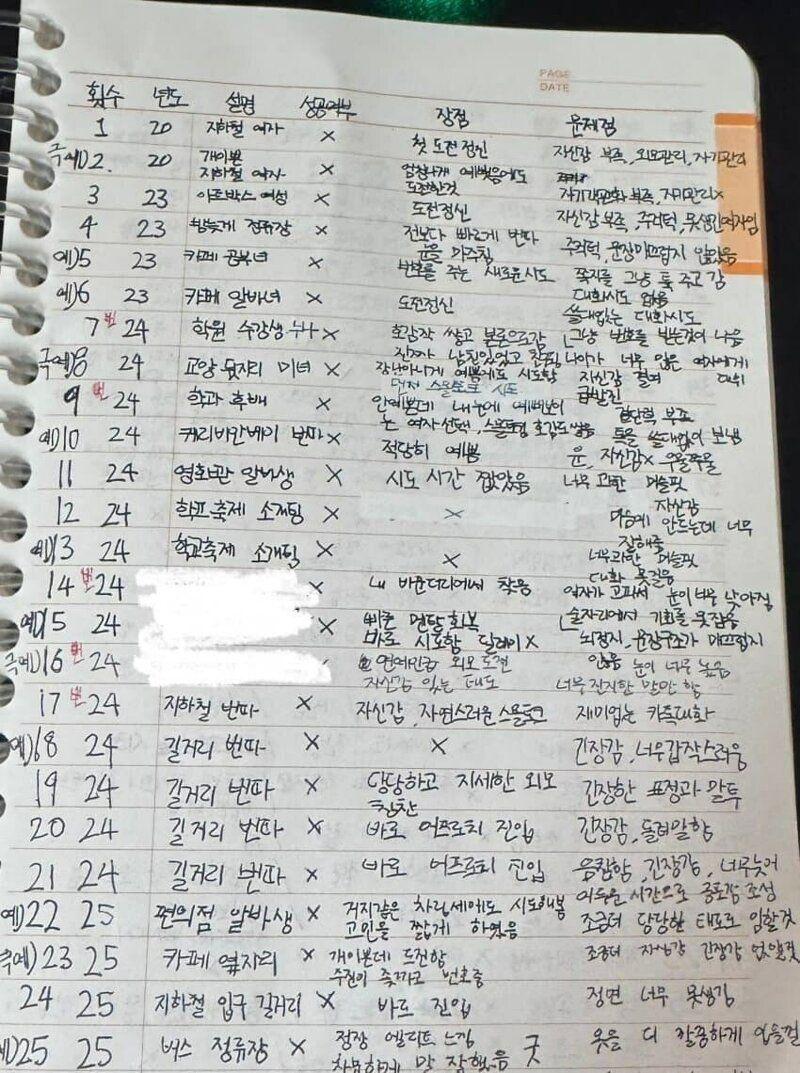 PAGE
DATE
횟수 년도 설명 성공여부 장점 문제점
1 20 지하철 여자 × 첫 도전정신 자신감 부족, 외모관리, 자기관리
극예)2. 20 개이쁜 지하철 여자 × 엄청나게 예뻤음에도 도전한것 자기객관화 부족, 자기관리×
3 23 아트박스 여성 × 도전정신 자신감 부족, 주저덕, 못생긴여자임
4 23 밤늦게 정류장 × 전보다 빠르게 번따 눈을 마주침 주저덕, 문장매끄럽지 않았음
예)5 23 카페 공부녀 × 번호를 주는 새로운시도 쪽지를 그냥 툭 주고 감 대화시도 없음
예)6 23 카페 알바녀 × 도전정신 쓸데없는 대화시도
7 번 24 학원 수강생 누나 × 호감작 쌓고 본론으로감 그냥 번호를 받는것이 나음
극예)8 24 교양 뒷자리 미녀 × 예쁜데도 시도함 나이가 너무 많은 여자에게 자신감 결여
9 번 24 학과 후배 × 먼저 스몰토크 시도 급발진
예)10 24 캐리비안베이 번따 × 적당히 예쁨 눈, 자신감× 우물쭈물
11 24 영화관 알바생 × 시도 시간 짧았음 너무 과한 머슬핏
12 24 학교축제 소개팅 × × 자신감 마음에 안드는데 너무 잘해줌
예)13 24 학교축제 소개팅 × × 너무과한 머슬핏
14 번 24 × 내 바운더리에서 찾음 여자가 고파서 눈이 너무 낮아짐
예)15 24 × 빠른 멘탈회복 바로 시도함 딜레이× 술자리에서 기회를 못잡음 뇌정지, 문장구조가 매끄럽지
극예)16 번 24 연예인급 외모 도전 자신감 있는 태도 않음 눈이 너무 높음 너무진지한 말만 함
17 번 24 지하철 번따 × 자신감, 자연스러운 스몰토크 재미없는 카톡대화
예)18 24 길거리 번따 × × 긴장감, 너무갑작스러움
19 24 길거리 번따 × 당당하고 자세한 외모 칭찬 긴장한 표정과 말투
20 24 길거리 번따 × 바로 어프로치 진입 긴장감, 돌려말함
21 24 길거리 번따 × 바로 어프로치 진입 음침함, 긴장감, 너무늦어 어두운 시간으로 공포감 조성
예)22 25 편의점 알바생 × 거지같은 차림새에도 시도해봄 고민을 짧게 하였음 조금더 당당한 태도로 임할것
극예)23 25 카페 옆자리 × 개이쁜데 도전함 조금더 자신감 긴장감 없앨것
24 25 지하철 입구 길거리 × 바로 진입 정면 너무 못생김
예)25 25 버스 정류장 × 정장 엘리트 느낌 차분하게 말 잘했음 굿 옷을 더 깔끔하게 입을걸